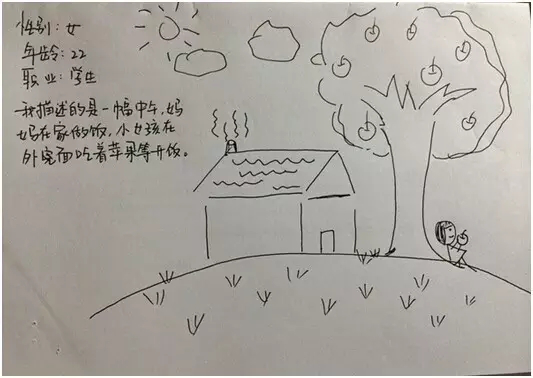 性别：女
年龄：22
职业：学生
我描述的是一幅中午，妈
妈在家做饭，小女孩在
外面吃着苹果等开饭。